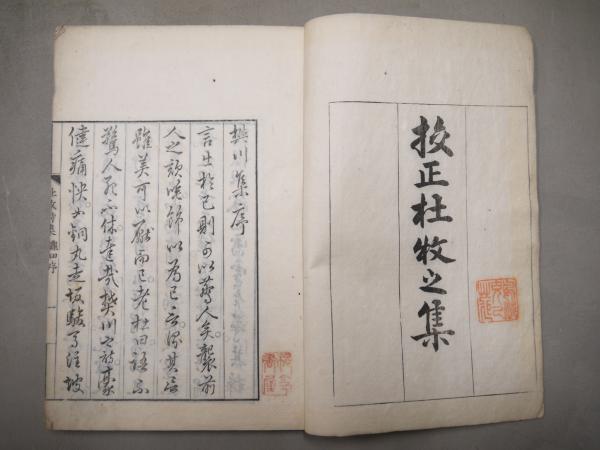 校正杜牧之集
樊川集序
言出於己則可以蔿人矣襲前
人之殘
以為己
其辰
雖美可以厭而已老杜曰語不
驚人死不休奎哉樊川之詩豪
健痛快如銅丸走坂駿馬注坡